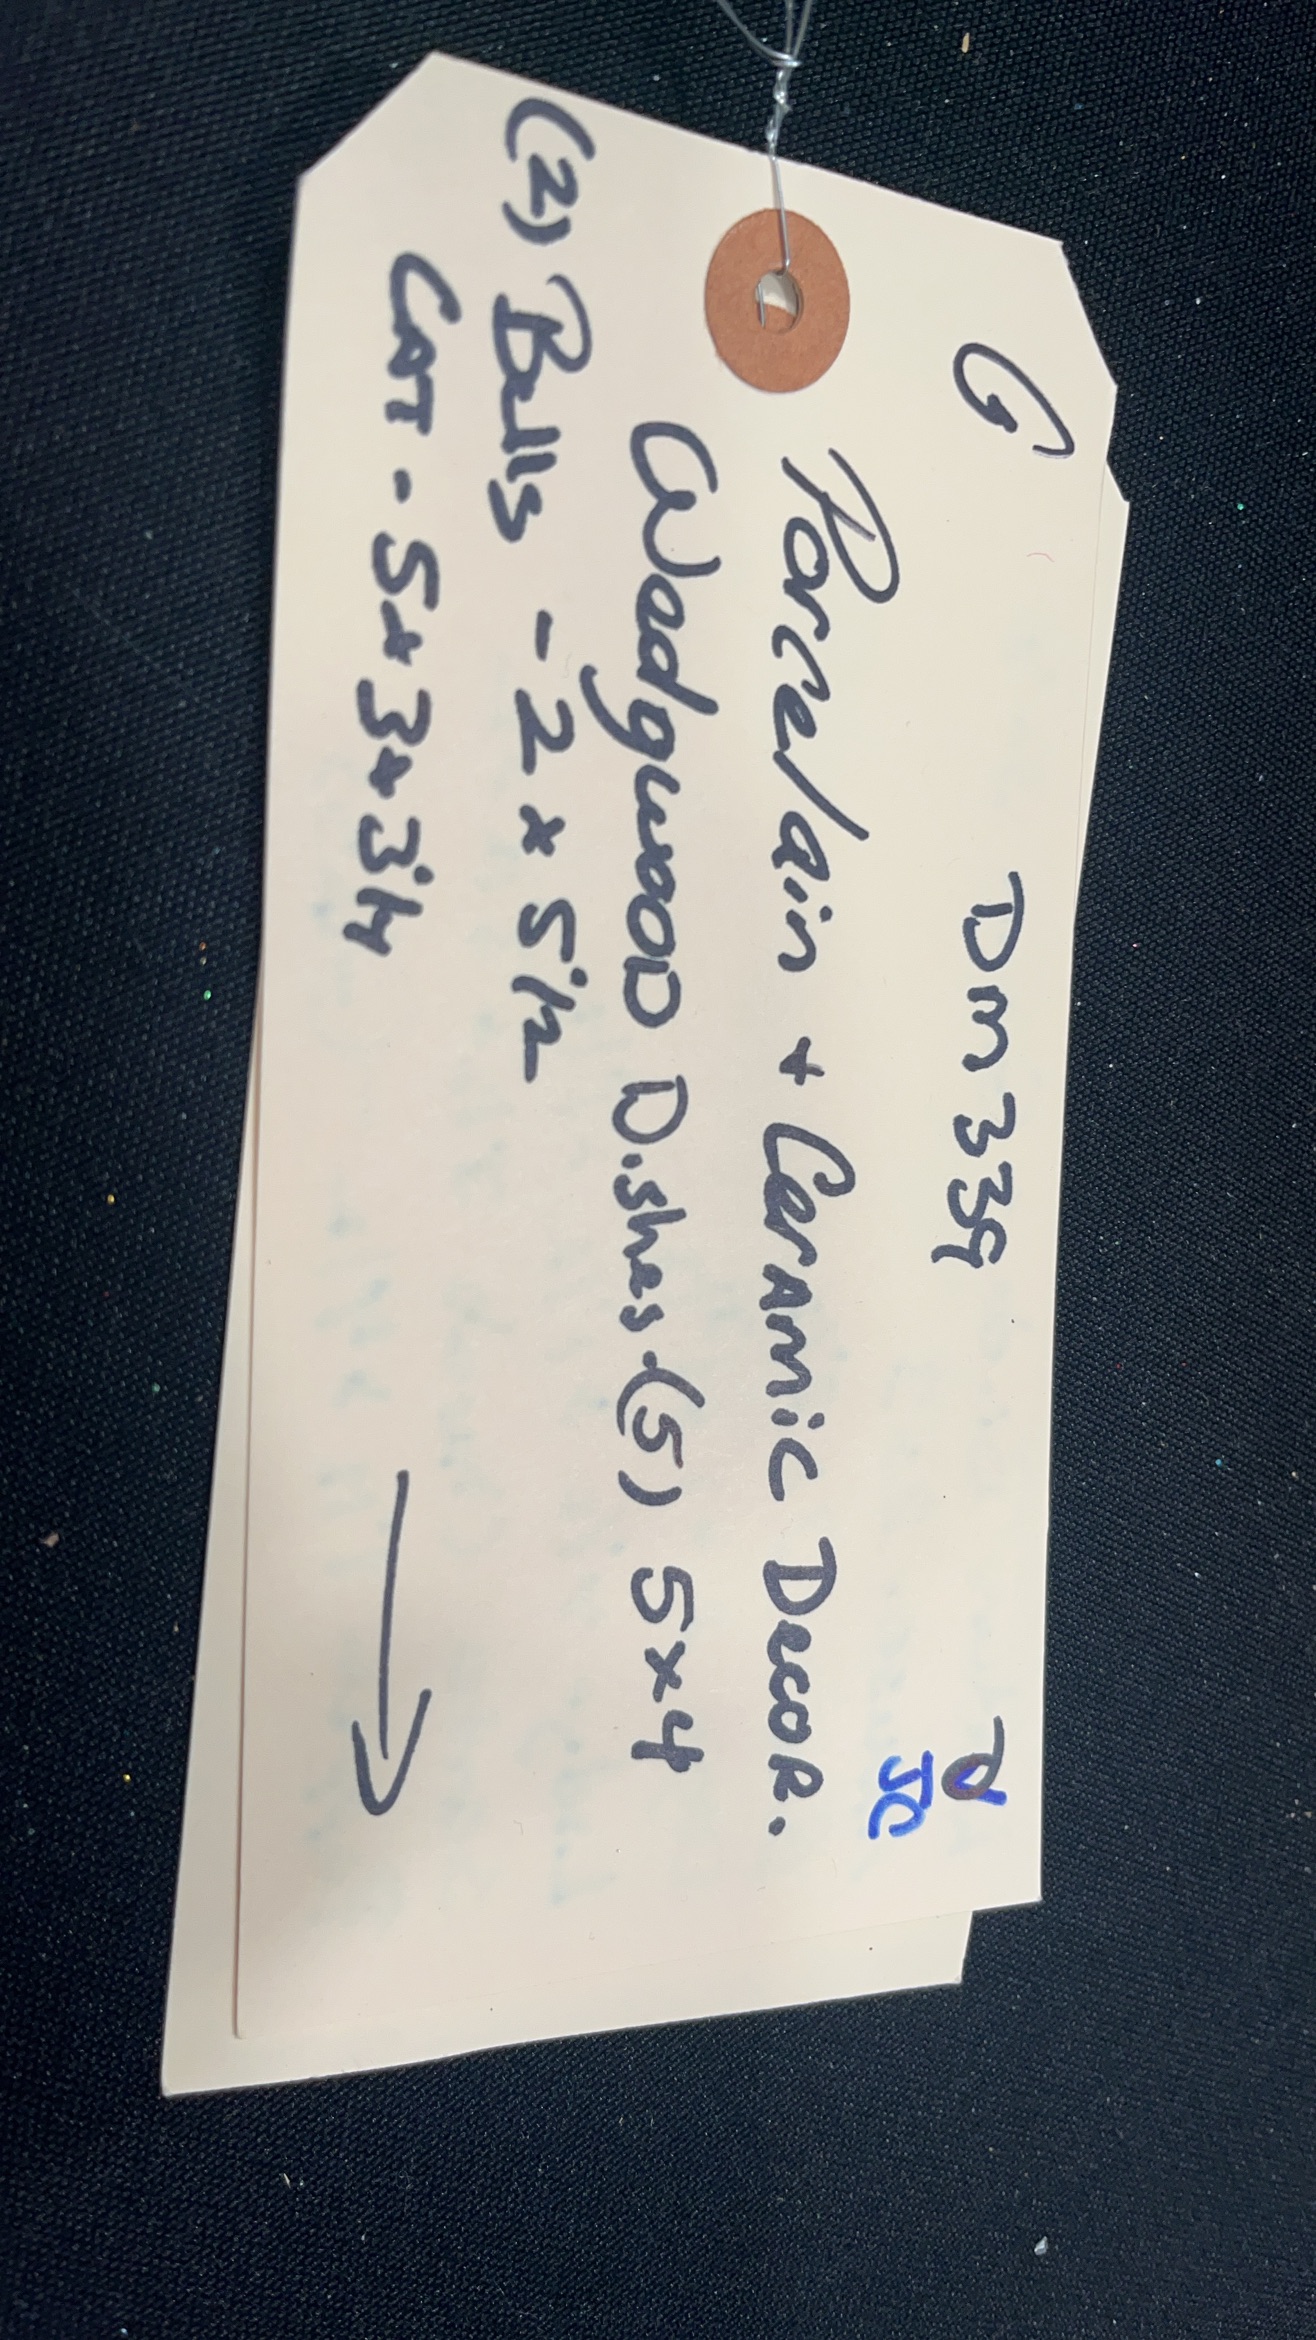 G DM 339
JC
Porcelain + Ceramic Decor.
Wedgwood Dishes.(5) 5x4
(2) Bells - 2 x 5 1/2
Cat - 5x3x3 1/4